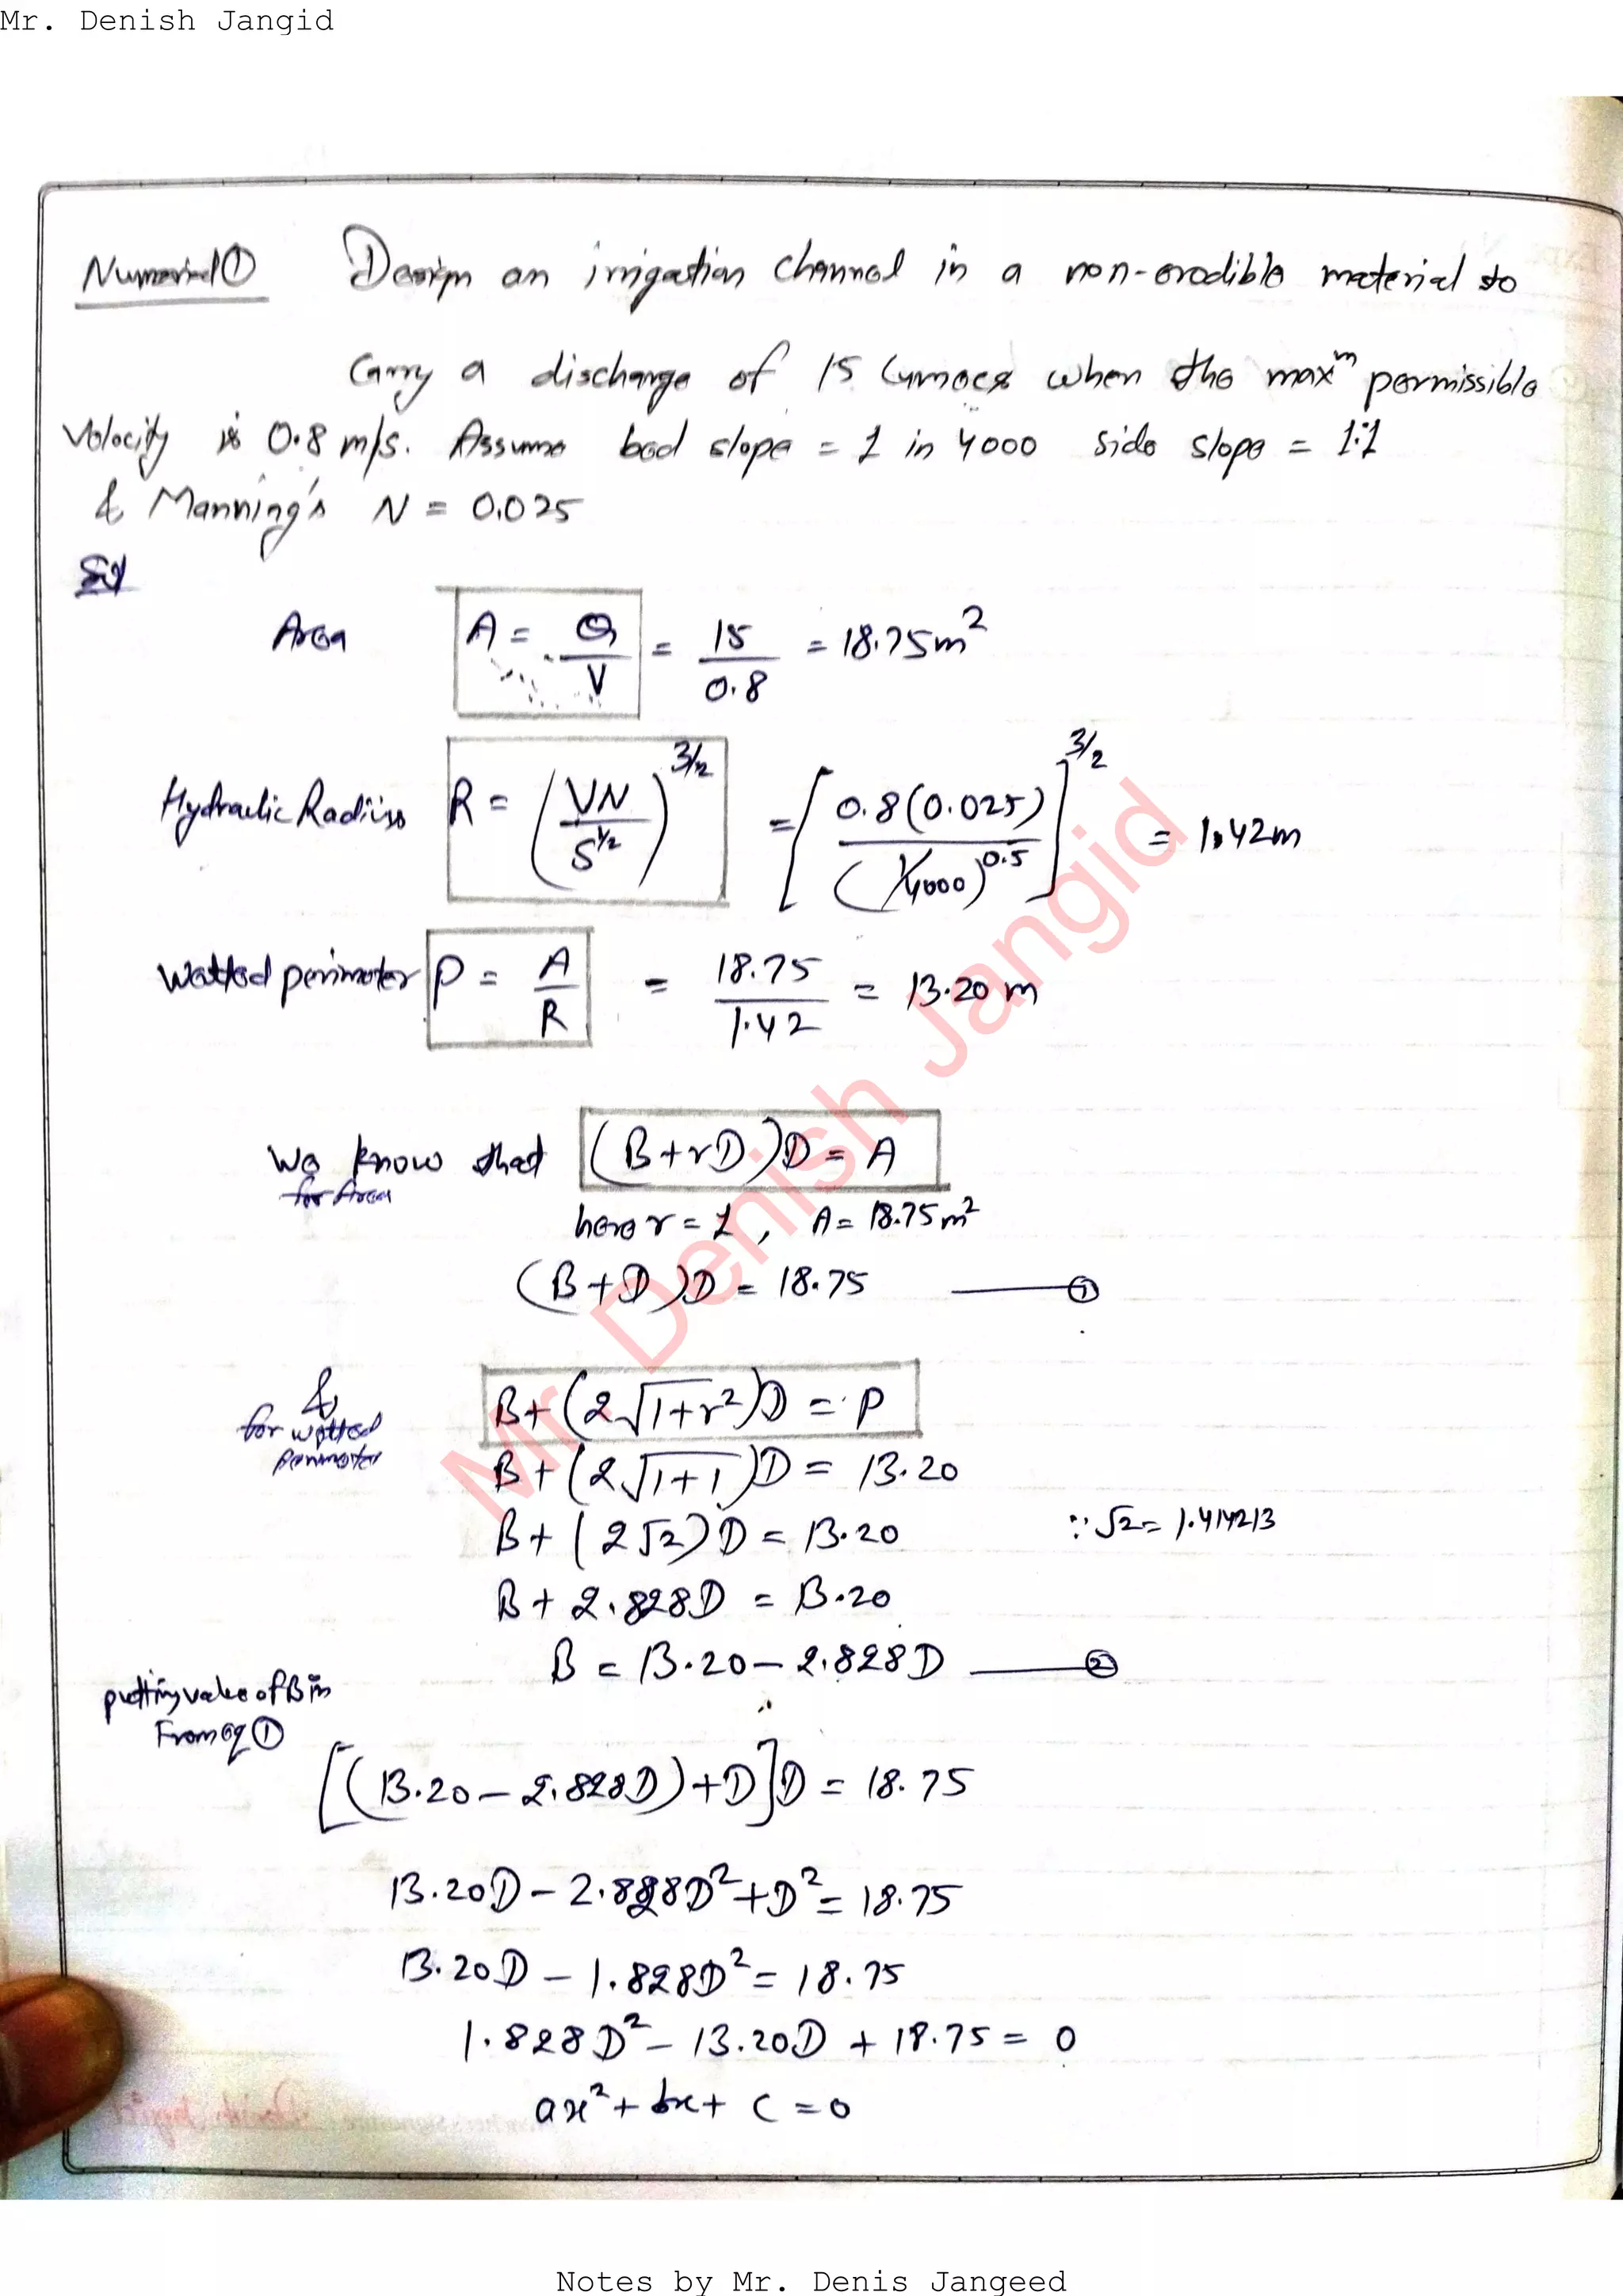 Mr. Denish Jangid
Numerical ① Design an irrigation channel in a non-erodible material to
Carry a discharge of 15 Cumecs when the max^m permissible
Velocity is 0.8 m/s. Assume bed slope = 1 in 4000 side slope = 1:1
& Manning's N = 0.025
Sol
Area A = Q/V = 15/0.8 = 18.75 m²
Hydraulic Radius R = (VN/S^½)^3/2 = [0.8(0.025)/(1/4000)^0.5]^3/2 = 1.42m
Wetted perimeter P = A/R = 18.75/1.42 = 13.20 m
We know that (B+rD)D = A
for Area
here r = 1, A = 18.75 m²
(B+D)D = 18.75 —— ①
& B+(2√1+r²)D = P
for wetted
perimeter
B+(2√1+1)D = 13.20
B+(2√2)D = 13.20 ∵ √2 = 1.414213
B+2.828D = 13.20
B = 13.20 – 2.828D —— ②
putting value of B in
From eq ①
[(13.20 – 2.828D)+D]D = 18.75
13.20D – 2.828D²+D² = 18.75
13.20D – 1.828D² = 18.75
1.828D² – 13.20D + 18.75 = 0
ax² + bx + c = 0
Mr. Denish Jangid
Notes by Mr. Denis Jangeed